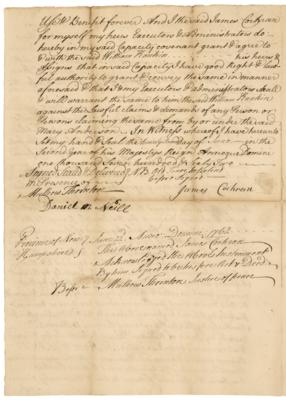 Use & Benefit forever And I the said James Cochran
for myself my heirs Executors & Administrators do
hereby in my said Capacity covenant grant & agree to
& with the said William Rankin his heirs &
Assigns that in said Capacity I have good Right & Law-
ful authority to grant & convey the same in manner
aforesaid & that I & my Executors & administrators shall
& will warrant the same to him the said William Rankin
against the lawful claims & demands of any Person or
Persons claiming the same from by or under the said
Mary Anderson. In Witness whereof I have hereunto
set my hand & Seal the day of June in the
Second Year of his Majestys Reign Annoque Domini
one thousand Seven hundred & Sixty Two
Signed Seald & Delivered N.B.
in Presence of before signed
Matthew Thornton James Cochran
Daniel McNeill
Province of New Hampshire June 22 Anno Domini 1762
Then the above named James Cochran
Acknowledged the above Instrument
by him Signed to be his free Act & Deed
Before Matthew Thornton Justice of Peace